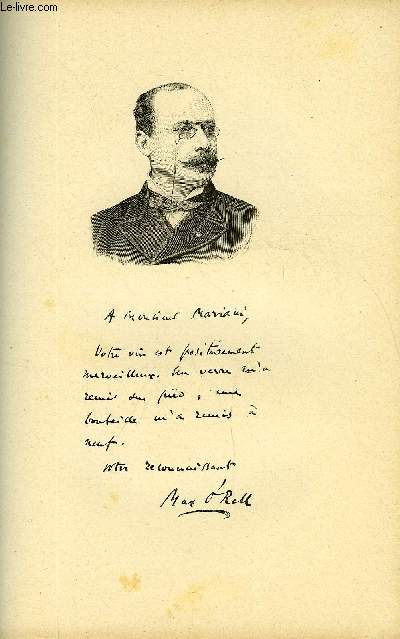 Le-livre.com
A Monsieur Mariani,
Votre vin est positivement
merveilleux. Un verre m'a
remis sur pied, une
bouteille m'a remis à
neuf.
Votre reconnaissant
Max O'Rell